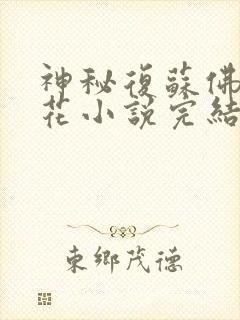 神秘復蘇佛
花小說完結
東鄉茂德